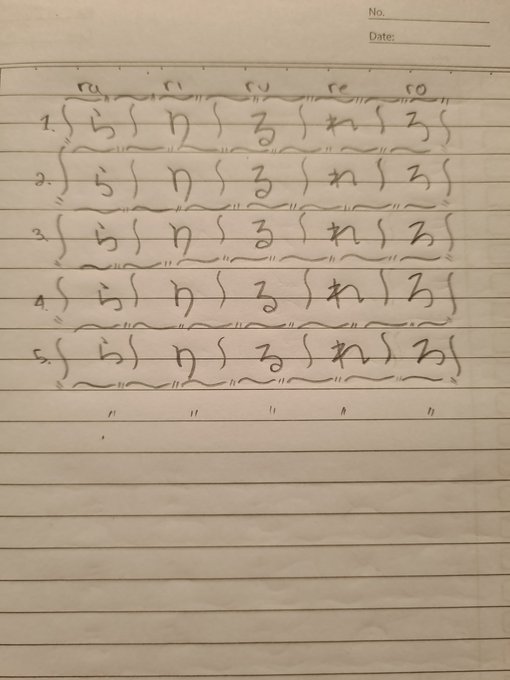 No.
Date:
ra ri ru re ro
1. ら り る れ ろ
2. ら り る れ ろ
3. ら り る れ ろ
4. ら り る れ ろ
5. ら り る れ ろ
" " " " "